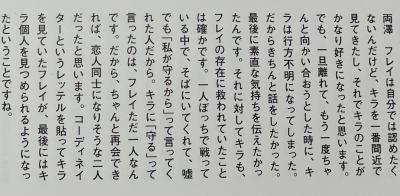 両澤　フレイは自分では認めたく
ないんだけど、キラを一番間近で
見てきたし、それでキラのことが
かなり好きになったと思います。
でも、一旦離れて、もう一度ちゃ
んと向かい合おうとした時に、キ
ラは行方不明になってしまった。
だからきちんと話をしたかった。
最後に素直な気持ちを伝えたかっ
たんです。それに対してキラも、
フレイの存在に救われていたこと
は確かです。一人ぼっちで戦って
いる中で、そばにいてくれて、嘘
でも「私が守るから」って言ってく
れた人だから。キラに「守る」って
言ったのは、フレイただ一人なん
です。だから、ちゃんと再会でき
れば、恋人同士になりそうな二人
だったと思います。コーディネイ
ターというレッテルを貼ってキラ
を見ていたフレイが、最後にはキ
ラ個人を見つめられるようになっ
たということですね。